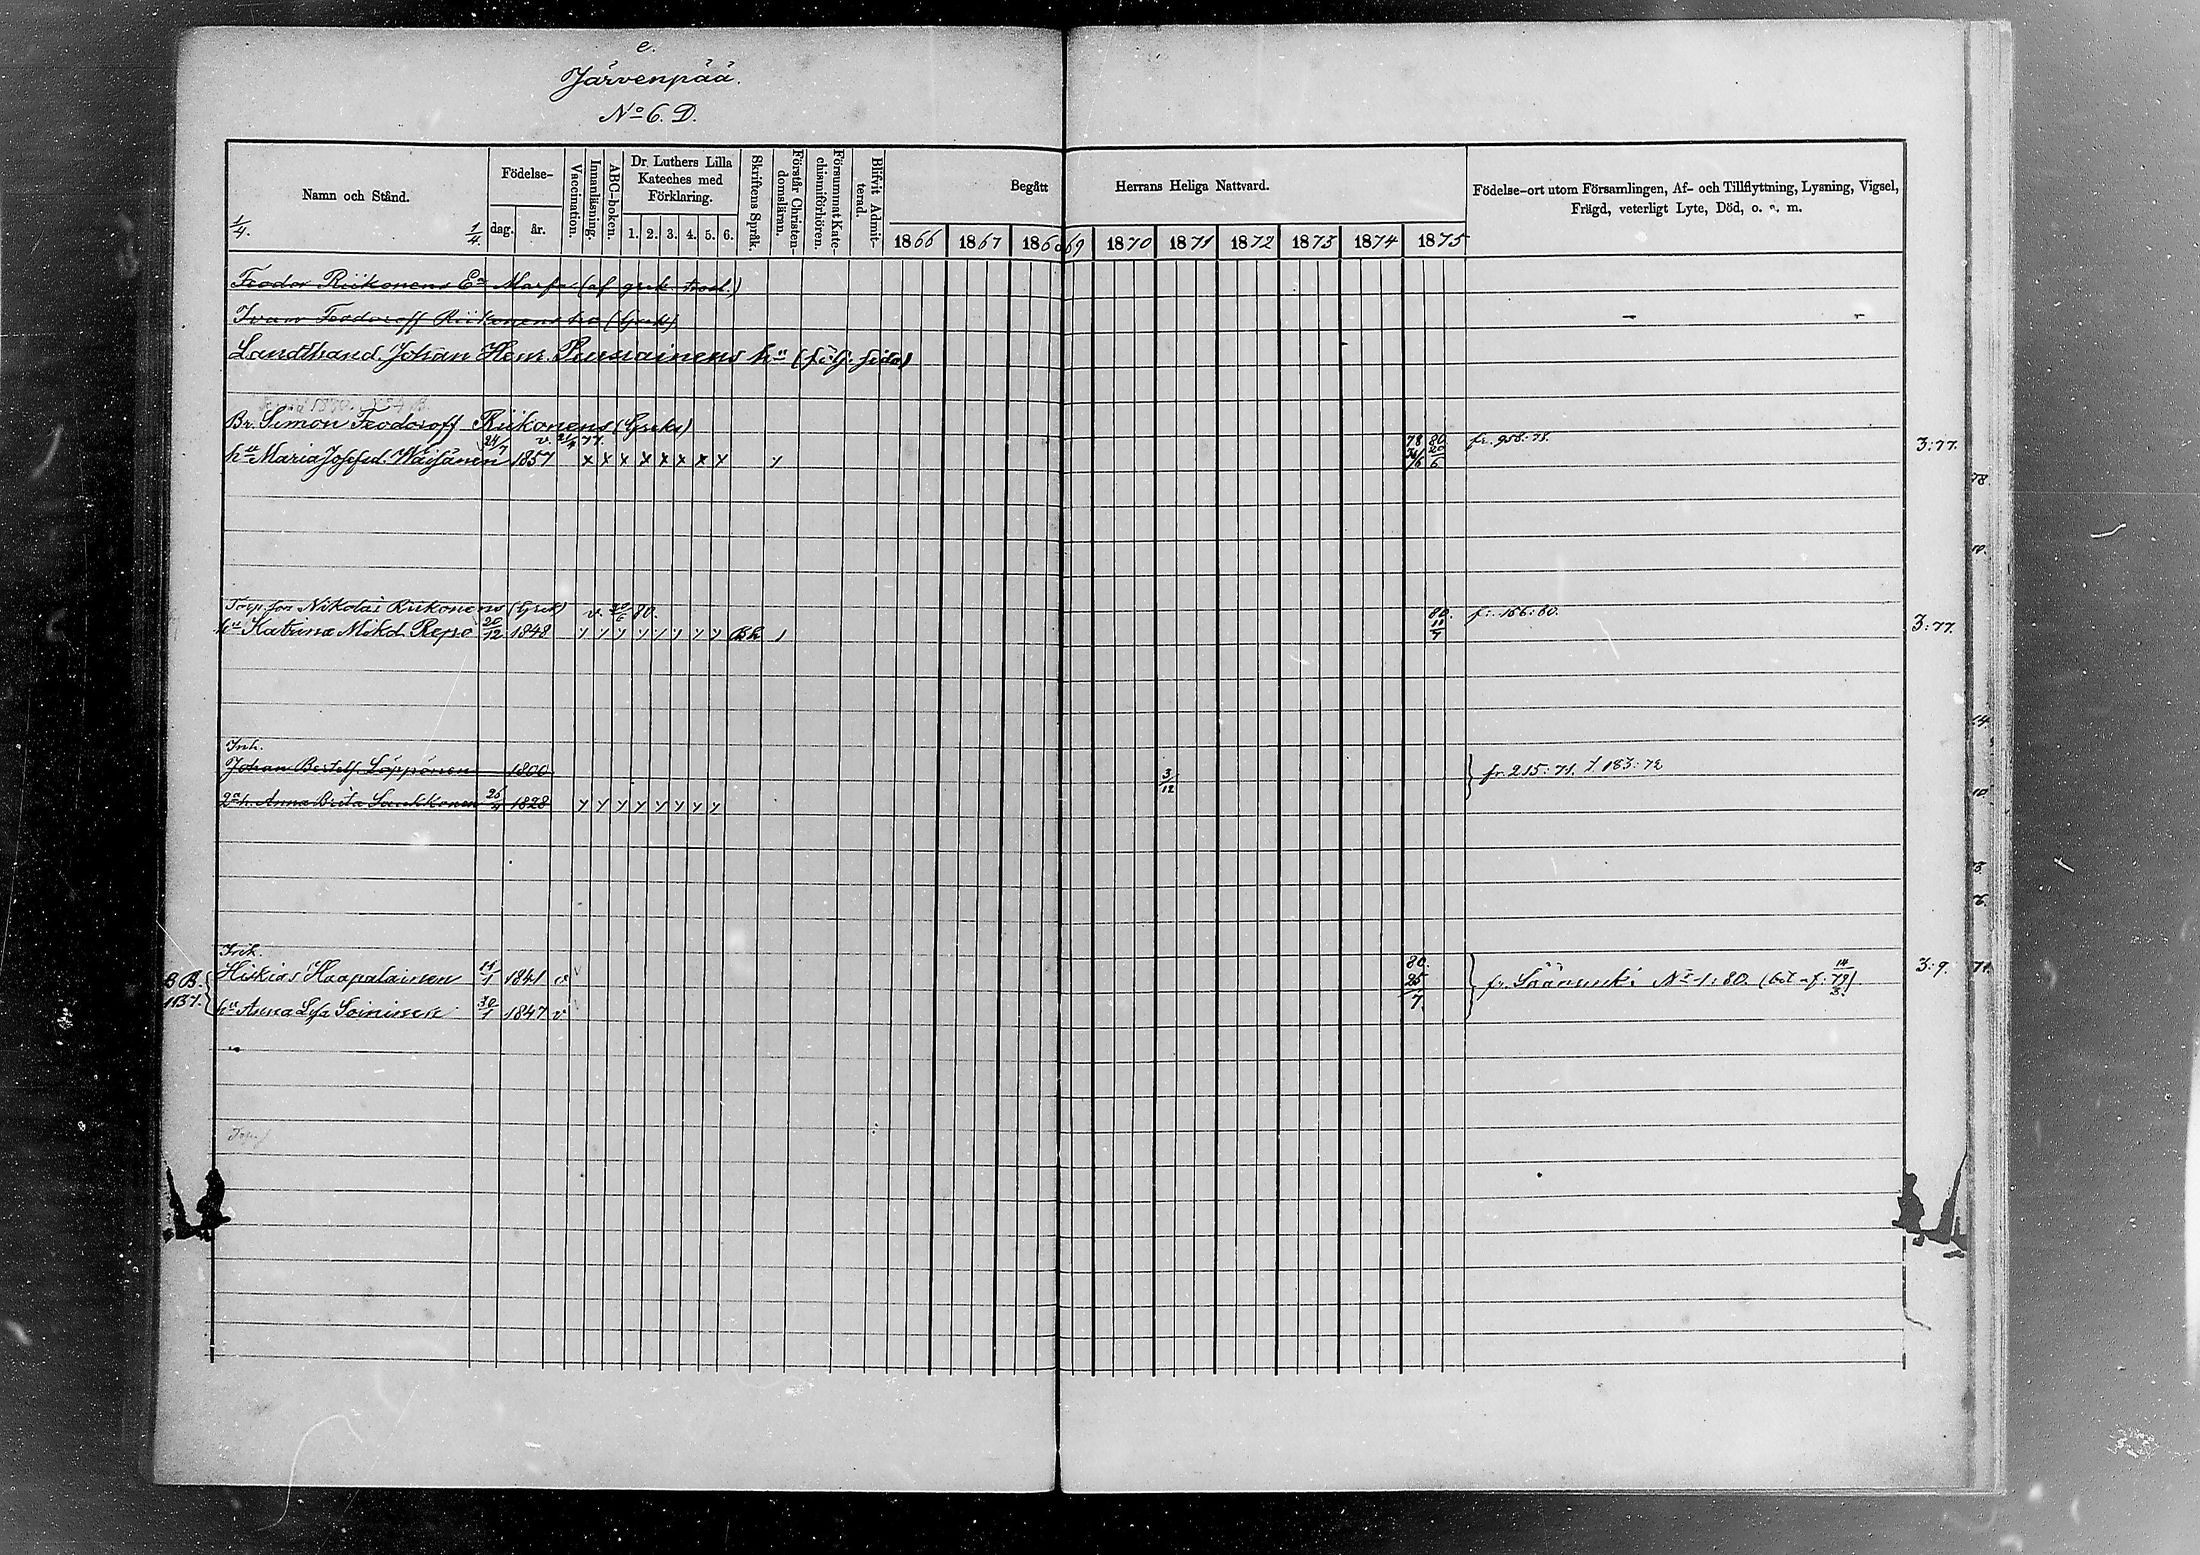 e.
Järvenpää.
No 6. D.
Namn och Stånd.
1/4.
1/4.
Födelse-
dag.
år.
Vaccination.
Innanläsning.
ABC-boken.
Dr Luthers Lilla
Kateches med
Förklaring.
1. 2. 3. 4. 5. 6.
Skriftens Språk.
Förstår Christen-
domsläran.
Försummat Kate-
chismiförhören.
Blifvit Admit-
terad.
Begått Herrans Heliga Nattvard.
1866 1867 186 69 1870 1871 1872 1873 1874 1875
Födelse-ort utom Församlingen, Af- och Tillflyttning, Lysning, Vigsel,
Frägd, veterligt Lyte, Död, o. s. m.
Feodor Riikonens Ea Marfa (af grek. trosl.)
Ivan Feodoroff Riikonens (Grek)
Landtband. Johan Henr. Pursiainens hu (följ. sida)
Br. Simon Feodoroff Riikonens (Greks)
24/7 v. 21/4 77. 78 80 fr. 958:78. 3:77.
hu Maria Josefsd. Wäisänen 1857 x x x x x x x x 20/6
78.
Torp. son Nikolai Riikonens (Grek) v. 20/6 80. 80. fr. 166:80.
hu Katrina Mikd. Repo 20/12 1848 Bh 11/7 3:77.
Inh.
Johan Bertelf. Löppönen 1800 3/12 fr. 215:71. t. 183:72
2a h. Anna Brita Saukkonen 25/ 1828
Inh.
BB. Hiskias Haapalainen 11/1 1841 v 80. fr. Sääminki No 1:80. (bet. af: 14/3 79) 3:9. 71.
1137. hu Anna Lisa Soininen 30/1 1847 v 25/7